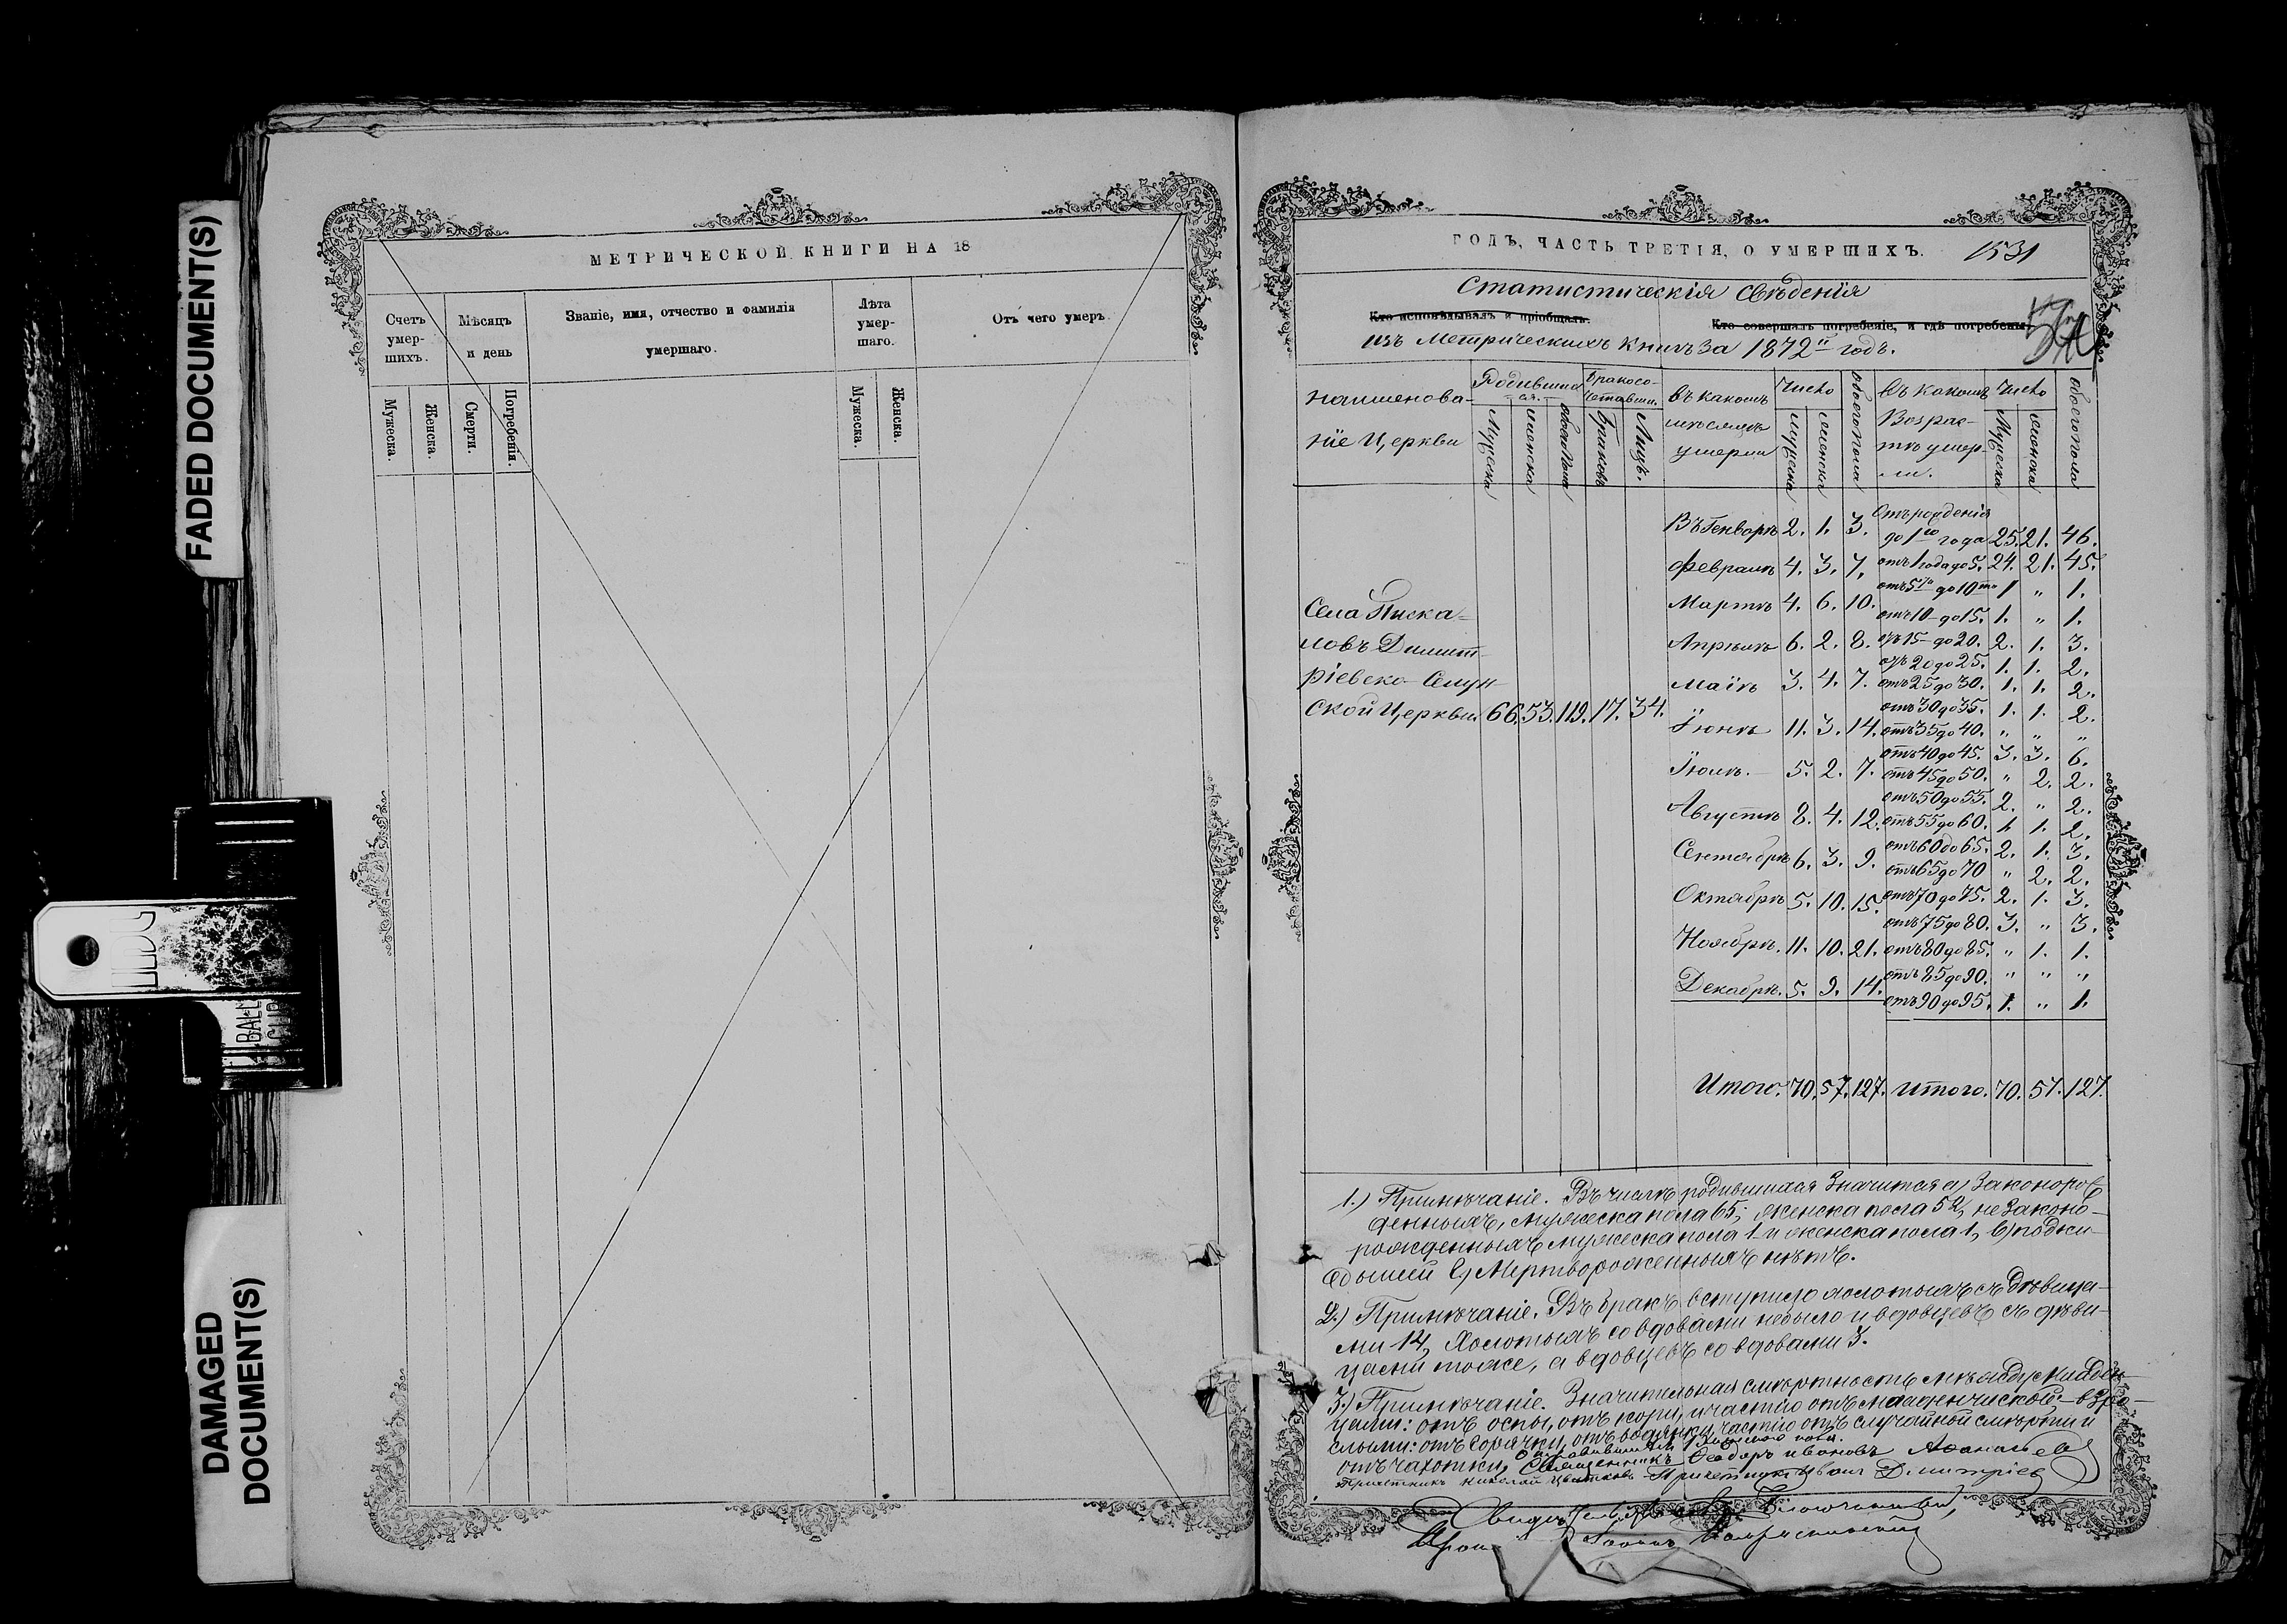 FADED DOCUMENT(S)
DAMAGED
DOCUMENT(S)
BALL
CLIP
МЕТРИЧЕСКОЙ КНИГИ НА 18
Счетъ умер-шихъ.
Мѣсяцъ и день
Званіе, имя, отчество и фамилія умершаго.
Лѣта умер-шаго.
Отъ чего умеръ.
Мужеска. Женска. Смерти. Погребенія. Мужеска. Женска.
ГОДЪ, ЧАСТЬ ТРЕТІЯ, О УМЕРШИХЪ. 1531
Статистическія свѣденія
Кто исповѣдывалъ и пріобщалъ. Кто совершалъ погребеніе, и гдѣ погребены.
изъ Метрическихъ книгъ за 1872й годъ.
Наименова-ніе Церкви
Родивши-ся.
Мужеска Женска обоего пола
Бракосо-четавши.
Браковъ Лицъ.
въ какомъ мѣсяцѣ умерли
Число
Мужеска Женска обоего пола
въ какомъ Возрас-тѣ умер-ли.
Число
Мужеска Женска обоего пола
Села Писка-
ловъ Димит-
ріевско-Селун-
ской Церкви 66. 53. 119. 17. 34.
Въ Генварѣ 2. 1. 3.
Февралѣ 4. 3. 7.
Мартѣ 4. 6. 10.
Апрѣлѣ 6. 2. 8.
Маіѣ 3. 4. 7.
Іюнѣ 11. 3. 14.
Іюлѣ. 5. 2. 7.
Августѣ 8. 4. 12.
Сентябрѣ 6. 3. 9.
Октябрѣ 5. 10. 15.
Ноябрѣ. 11. 10. 21.
Декабрѣ. 5. 9. 14.
Итого. 70. 57. 127.
Отъ рожденія
до 1го года 25. 21. 46.
отъ 1 года до 5. 24. 21. 45.
отъ 5ти до 10ти 1 " 1.
отъ 10 до 15. 1. " 1.
отъ 15 до 20. 2. 1. 3.
отъ 20 до 25. 1. 1. 2.
отъ 25 до 30. 1. 1. 2.
отъ 30 до 35. 1. 1. 2.
отъ 35 до 40. " " "
отъ 40 до 45. 3. 3. 6.
отъ 45 до 50. " 2. 2.
отъ 50 до 55. 2. " 2.
отъ 55 до 60. 1 1. 2.
отъ 60 до 65. 2. 1. 3.
отъ 65 до 70 " 2. 2.
отъ 70 до 75. 2. 1. 3.
отъ 75 до 80. 3. " 3.
отъ 80 до 85. " 1. 1.
отъ 85 до 90. " " "
отъ 90 до 95. 1. " 1.
Итого. 70. 57. 127.
1.) Примѣчаніе. Въ числѣ родившихся значится а) Законорож
денныхъ, мужеска пола 65, женска пола 52, не законо-
рожденныхъ мужеска пола 1 и женска пола 1, в) подки-
дышей г) Мертворожденныхъ нѣтъ.
2.) Примѣчаніе. Въ бракъ вступило холостыхъ съ дѣвица-
ми 14, Холостыхъ со вдовами небыло и вдовцевъ съ дѣви-
цами тоже, а вдовцевъ со вдовами 3.
3.) Примѣчаніе. Значительная смѣртность между Младен-
цами: отъ оспы, отъ кори, и частію отъ младенческой; взро-
слыми: отъ горячки, отъ водянки, частію отъ случайной смѣрти и
отъ чахотки. Священникъ Ѳеодоръ Ивановъ Аѳанасьев
Причетникъ Николай Цвѣтковъ Причетникъ Иванъ Дмитріев